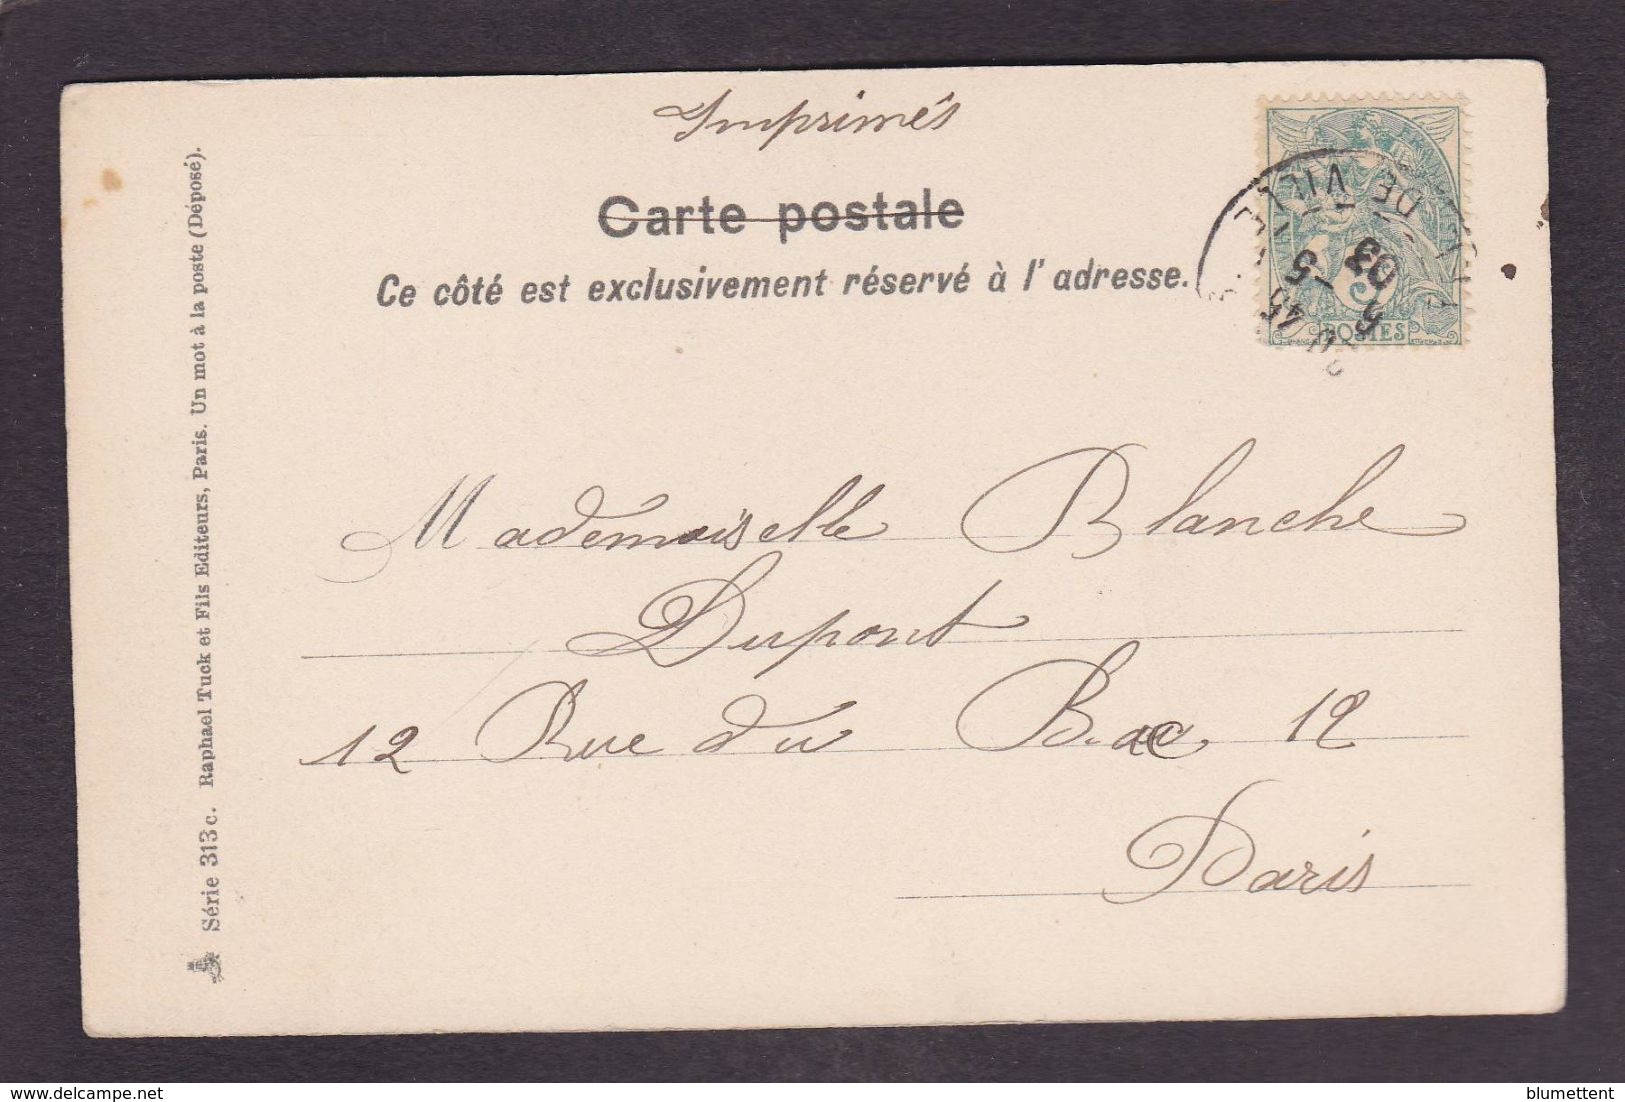 Imprimés
Carte postale
Ce côté est exclusivement réservé à l'adresse.
Mademoiselle Blanche
Dupont
12 Rue du Bac 12
Paris
Série 313 c. Raphael Tuck et Fils Editeurs, Paris. Un mot à la poste (Déposé).
POSTES
DE VILLE
6
5
03
blumettent